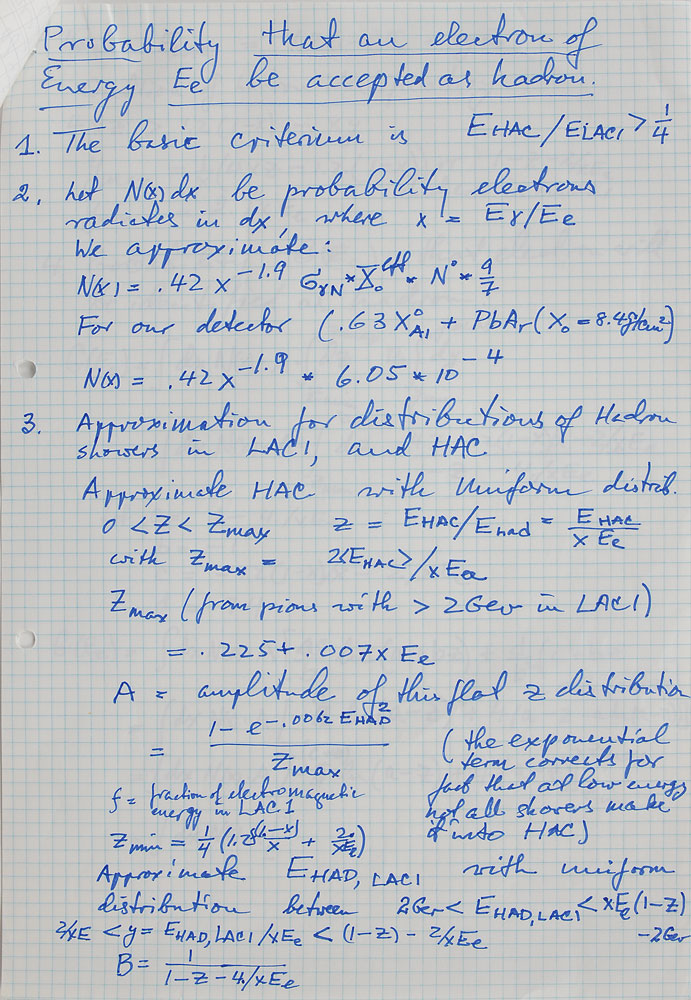 Probability that an electron of
Energy Ee be accepted as hadron.
1. The basic criterium is EHAC/ELAC1 > 1/4
2. Let N(x)dx be probability electrons
radiates in dx, where x = Eγ/Ee
We approximate:
N(x) = .42 x^-1.9 σγN * X̄o^eff * N° * 9/7
For our detector (.63 X°Al + PbAr (Xo = 8.4g/cm²)
N(x) = .42x^-1.9 * 6.05 * 10^-4
3. Approximation for distributions of Hadron
showers in LAC1, and HAC
Approximate HAC with Uniform distrib.
0 < Z < Zmax z = EHAC/Ehad = EHAC/xEe
with Zmax = 2<EHAC>/xEe
Zmax (from pions with > 2Gev in LAC1)
= .225 + .007x Ee
A = amplitude of this flat z distribution
= (1 - e^-.0062 EHAD²)/Zmax (the exponential
term corrects for
fact that at low energy
not all showers make
it into HAC)
f = fraction of electromagnetic
energy in LAC1
Zmin = 1/4 ( + 2/xEe)
Approximate EHAD,LAC1 with uniform
distribution between 2Gev < EHAD,LAC1 < xEe(1-z)
-2Gev
2/xE < y = EHAD,LAC1/xEe < (1-z) - 2/xEe
B = 1/(1-z-4/xEe)